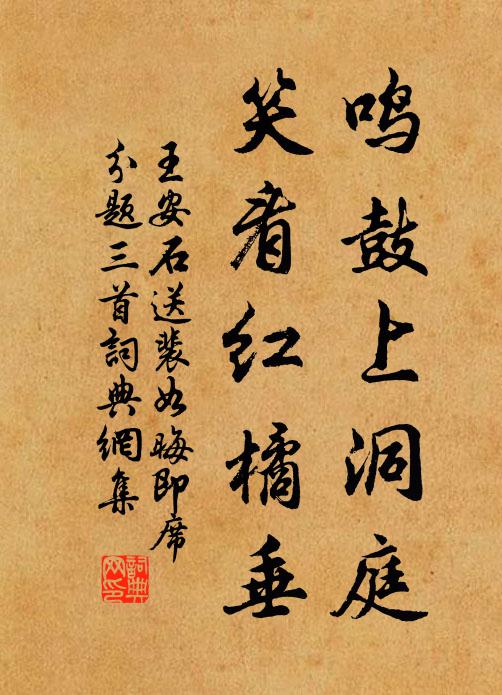 鸣鼓上洞庭
笑看红橘垂
王安石送裴如晦即席
分题三首词典網集
詞典网印